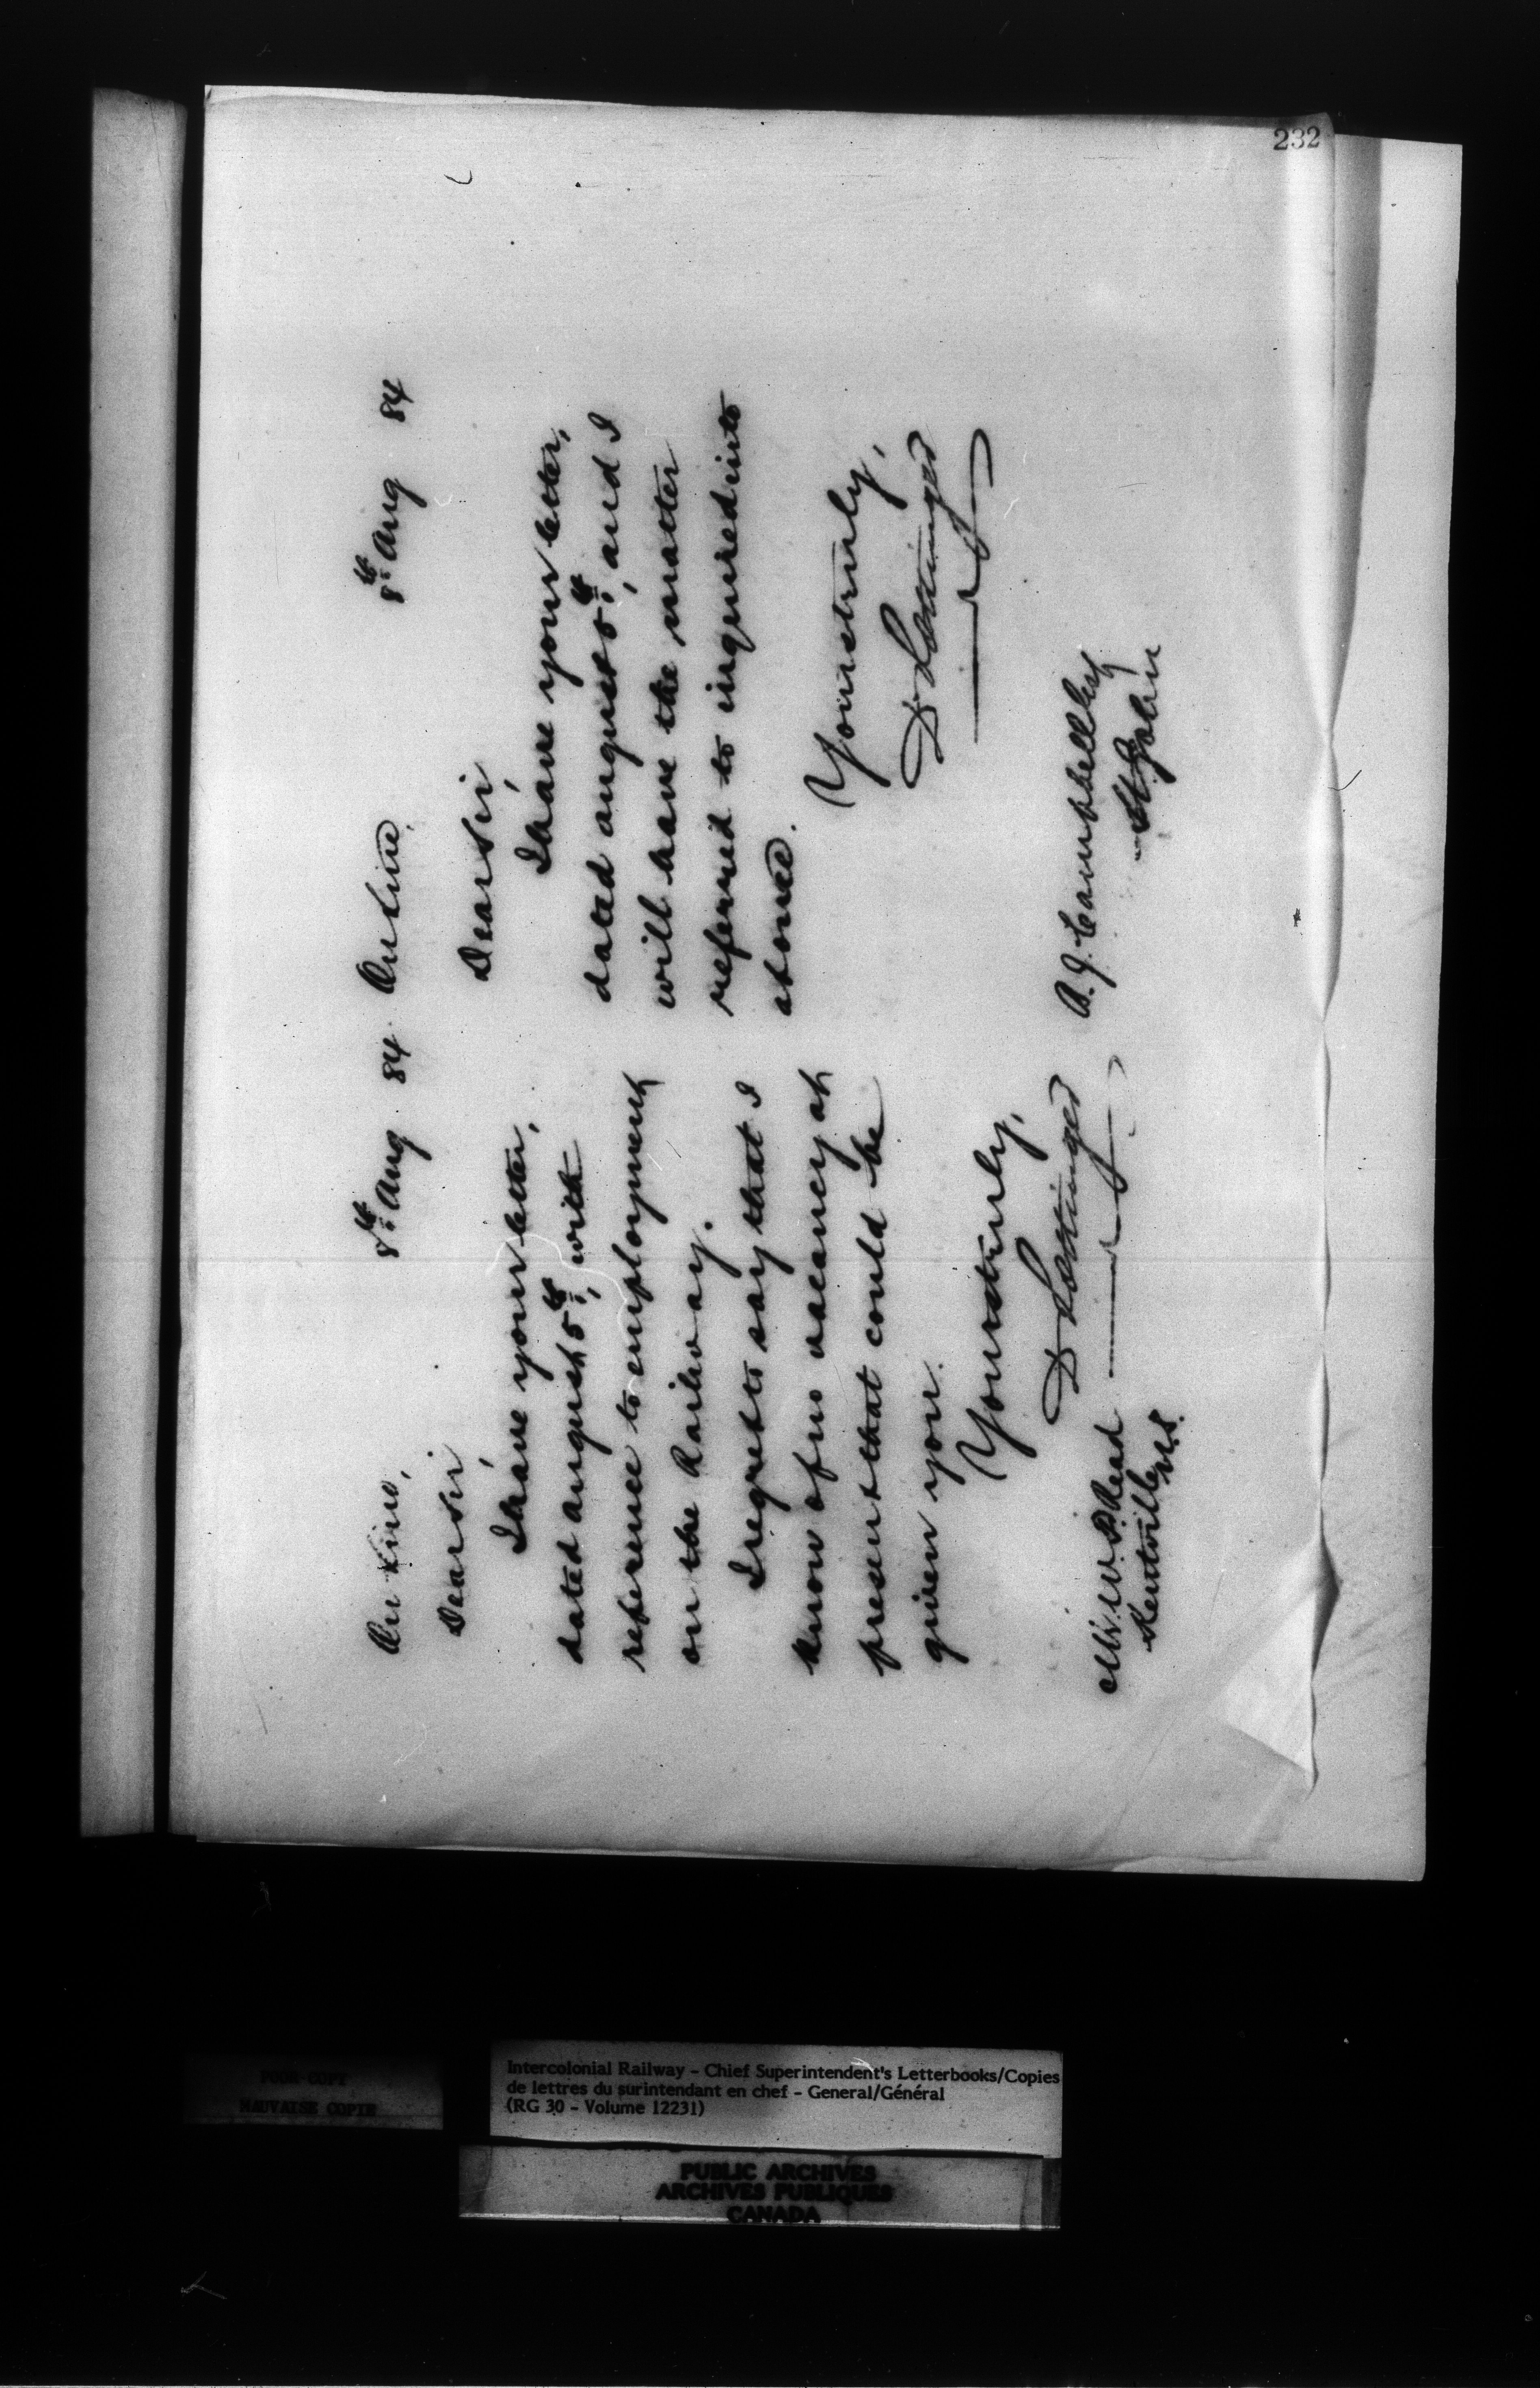 232
8th Aug 84
Dear Sir,
I have your letter,
dated august 5th, with
reference to employment
on the Railway.
I regret to say that I
know of no vacancy at
present that could be
given you.
Yours truly,
D Pottinger
Mr. W. P. Read
Kentville N.S.
8th Aug 84
Dear Sir,
I have your letter,
dated august 5th, and I
will have the matter
referred to inquired into
at once.
Yours truly,
D Pottinger
A. J. Campbell Esq
St. John
POOR COPY
MAUVAISE COPIE
Intercolonial Railway - Chief Superintendent's Letterbooks/Copies
de lettres du surintendant en chef - General/Général
(RG 30 - Volume 12231)
PUBLIC ARCHIVES
ARCHIVES PUBLIQUES
CANADA